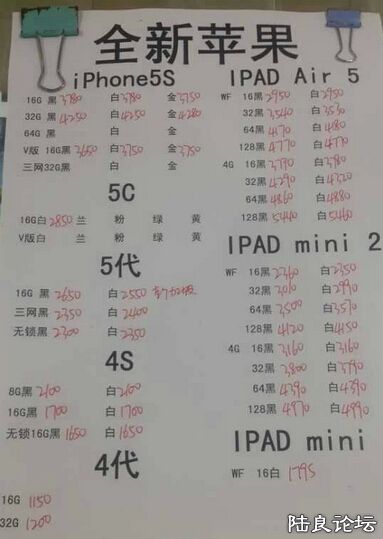 全新苹果
iPhone5S
16G 黑3780 白3780 金3750
32G 黑4250 白4250 金4280
64G 黑 白 金
V版 16G黑3650 白3750 金3750
三网32G黑 白 金
5C
16G白2850 兰 粉 绿 黄
V版白 兰 粉 绿 黄
5代
16G 黑2650 白2550
三网黑2350 白2400
无锁黑2300 白2350
4S
8G黑2100 白2100
16G黑1700 白1700
无锁16G黑1650 白1650
4代
16G 1150
32G 1200
IPAD Air 5
WF 16黑2950 白2950
32黑3540 白3530
64黑4170 白4180
128黑4770 白4770
4G 16黑3790 白3780
32黑4290 白4320
64黑4860 白4880
128黑5440 白5460
IPAD mini 2
WF 16黑2360 白2350
32黑3010 白2990
64黑3500 白3570
128黑4120 白4150
4G 16黑3160 白3160
32黑3800 白3790
64黑4390 白4390
128黑4970 白4990
IPAD mini
WF 16白 1795
陆良论坛